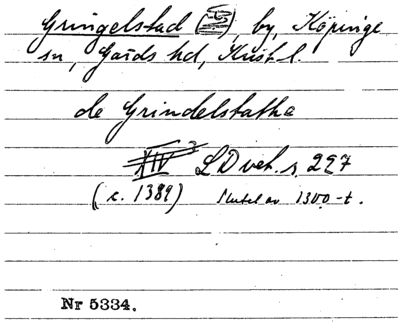 Gringelstad, by, Köpinge
sn, Gärds hd, Krist l.
de Grindelstatha
XIV LDvet. s. 227
(c. 1389) slutet av 1300-t.
Nr 5334.